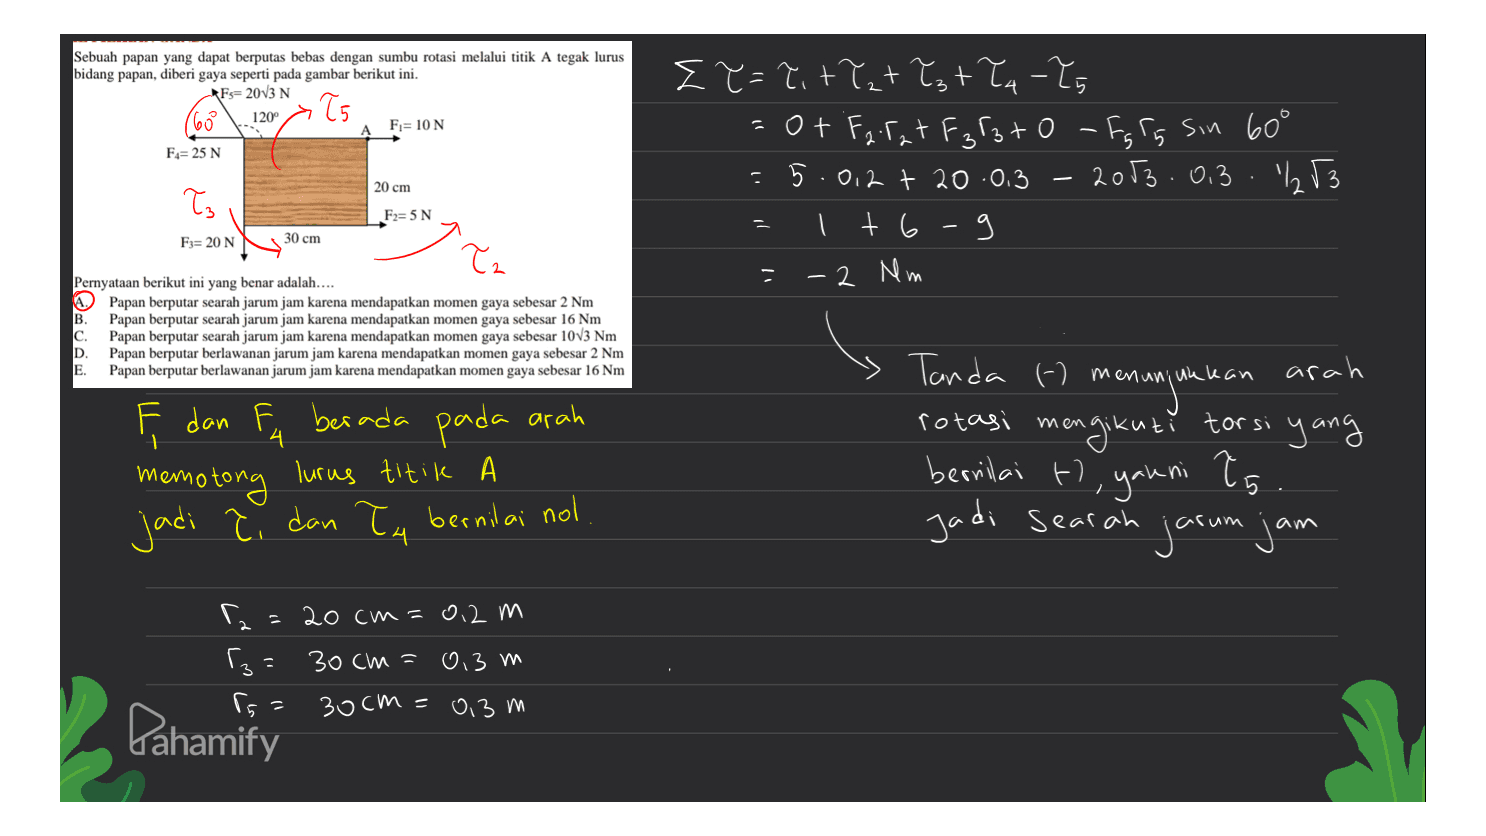 Sebuah papan yang dapat berputas bebas dengan sumbu rotasi melalui titik A tegak lurus
bidang papan, diberi gaya seperti pada gambar berikut ini.
F5= 20√3 N
τ5
60°
120°
A
F1= 10 N
F4= 25 N
20 cm
τ3
F2= 5 N
F3= 20 N
30 cm
τ2
Pernyataan berikut ini yang benar adalah….
A. Papan berputar searah jarum jam karena mendapatkan momen gaya sebesar 2 Nm
B. Papan berputar searah jarum jam karena mendapatkan momen gaya sebesar 16 Nm
C. Papan berputar searah jarum jam karena mendapatkan momen gaya sebesar 10√3 Nm
D. Papan berputar berlawanan jarum jam karena mendapatkan momen gaya sebesar 2 Nm
E. Papan berputar berlawanan jarum jam karena mendapatkan momen gaya sebesar 16 Nm
F1 dan F4 berada pada arah
memotong lurus titik A
jadi τ1 dan τ4 bernilai nol.
r2 = 20 cm = 0,2 m
r3 = 30 cm = 0,3 m
r5 = 30 cm = 0,3 m
Σ τ = τ1 + τ2 + τ3 + τ4 - τ5
= 0 + F2.r2 + F3 r3 + 0 - F5 r5 sin 60°
= 5 . 0,2 + 20 . 0,3 - 20√3 . 0,3 . 1/2 √3
= 1 + 6 - 9
= - 2 Nm
Tanda (-) menunjukkan arah
rotasi mengikuti torsi yang
bernilai (-), yakni τ5.
Jadi searah jarum jam
Pahamify